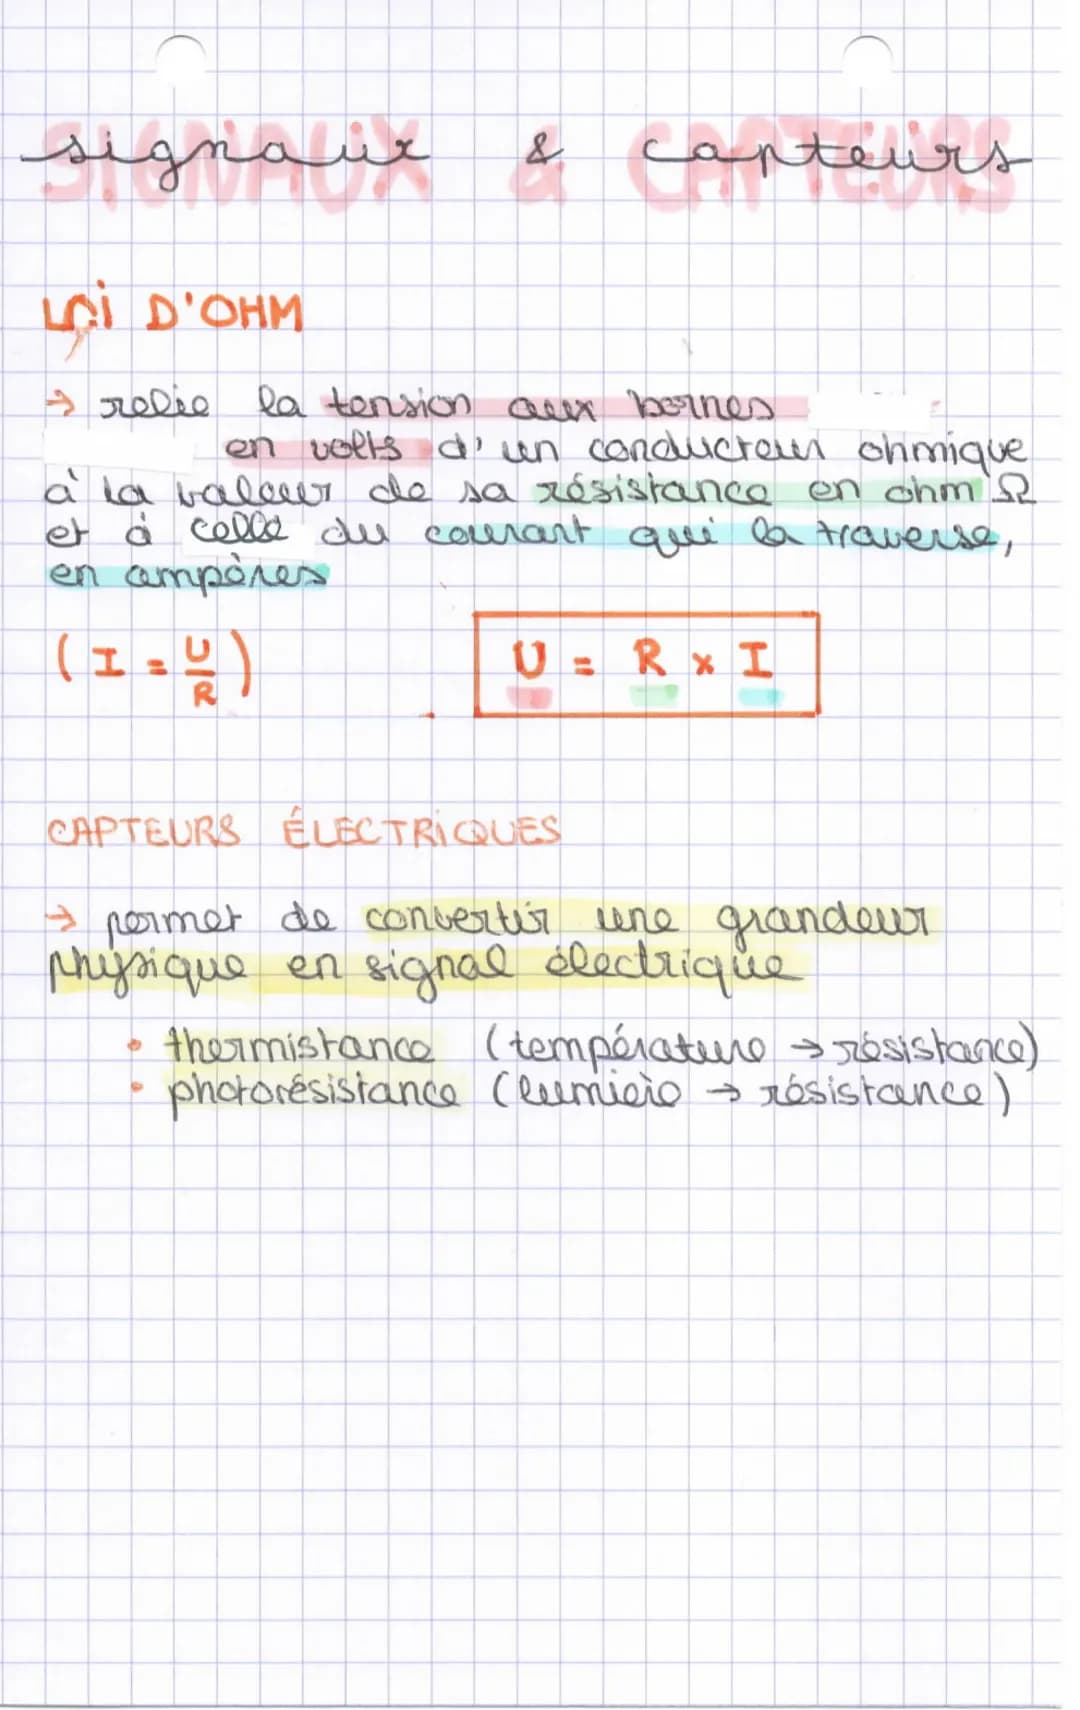 SIGNAUX & CAPTEURS
signaux & capteurs
LOi D'OHM
→ relie la tension aux bornes
en volts d'un conducteur ohmique
à la valeur de sa résistance en ohm Ω
et à celle du courant qui la traverse,
en ampères
(I = U/R)
U = R x I
CAPTEURS ÉLECTRiQUES
→ permet de convertir une grandeur
physique en signal électrique
• thermistance (température → résistance)
• photorésistance (lumière → résistance)